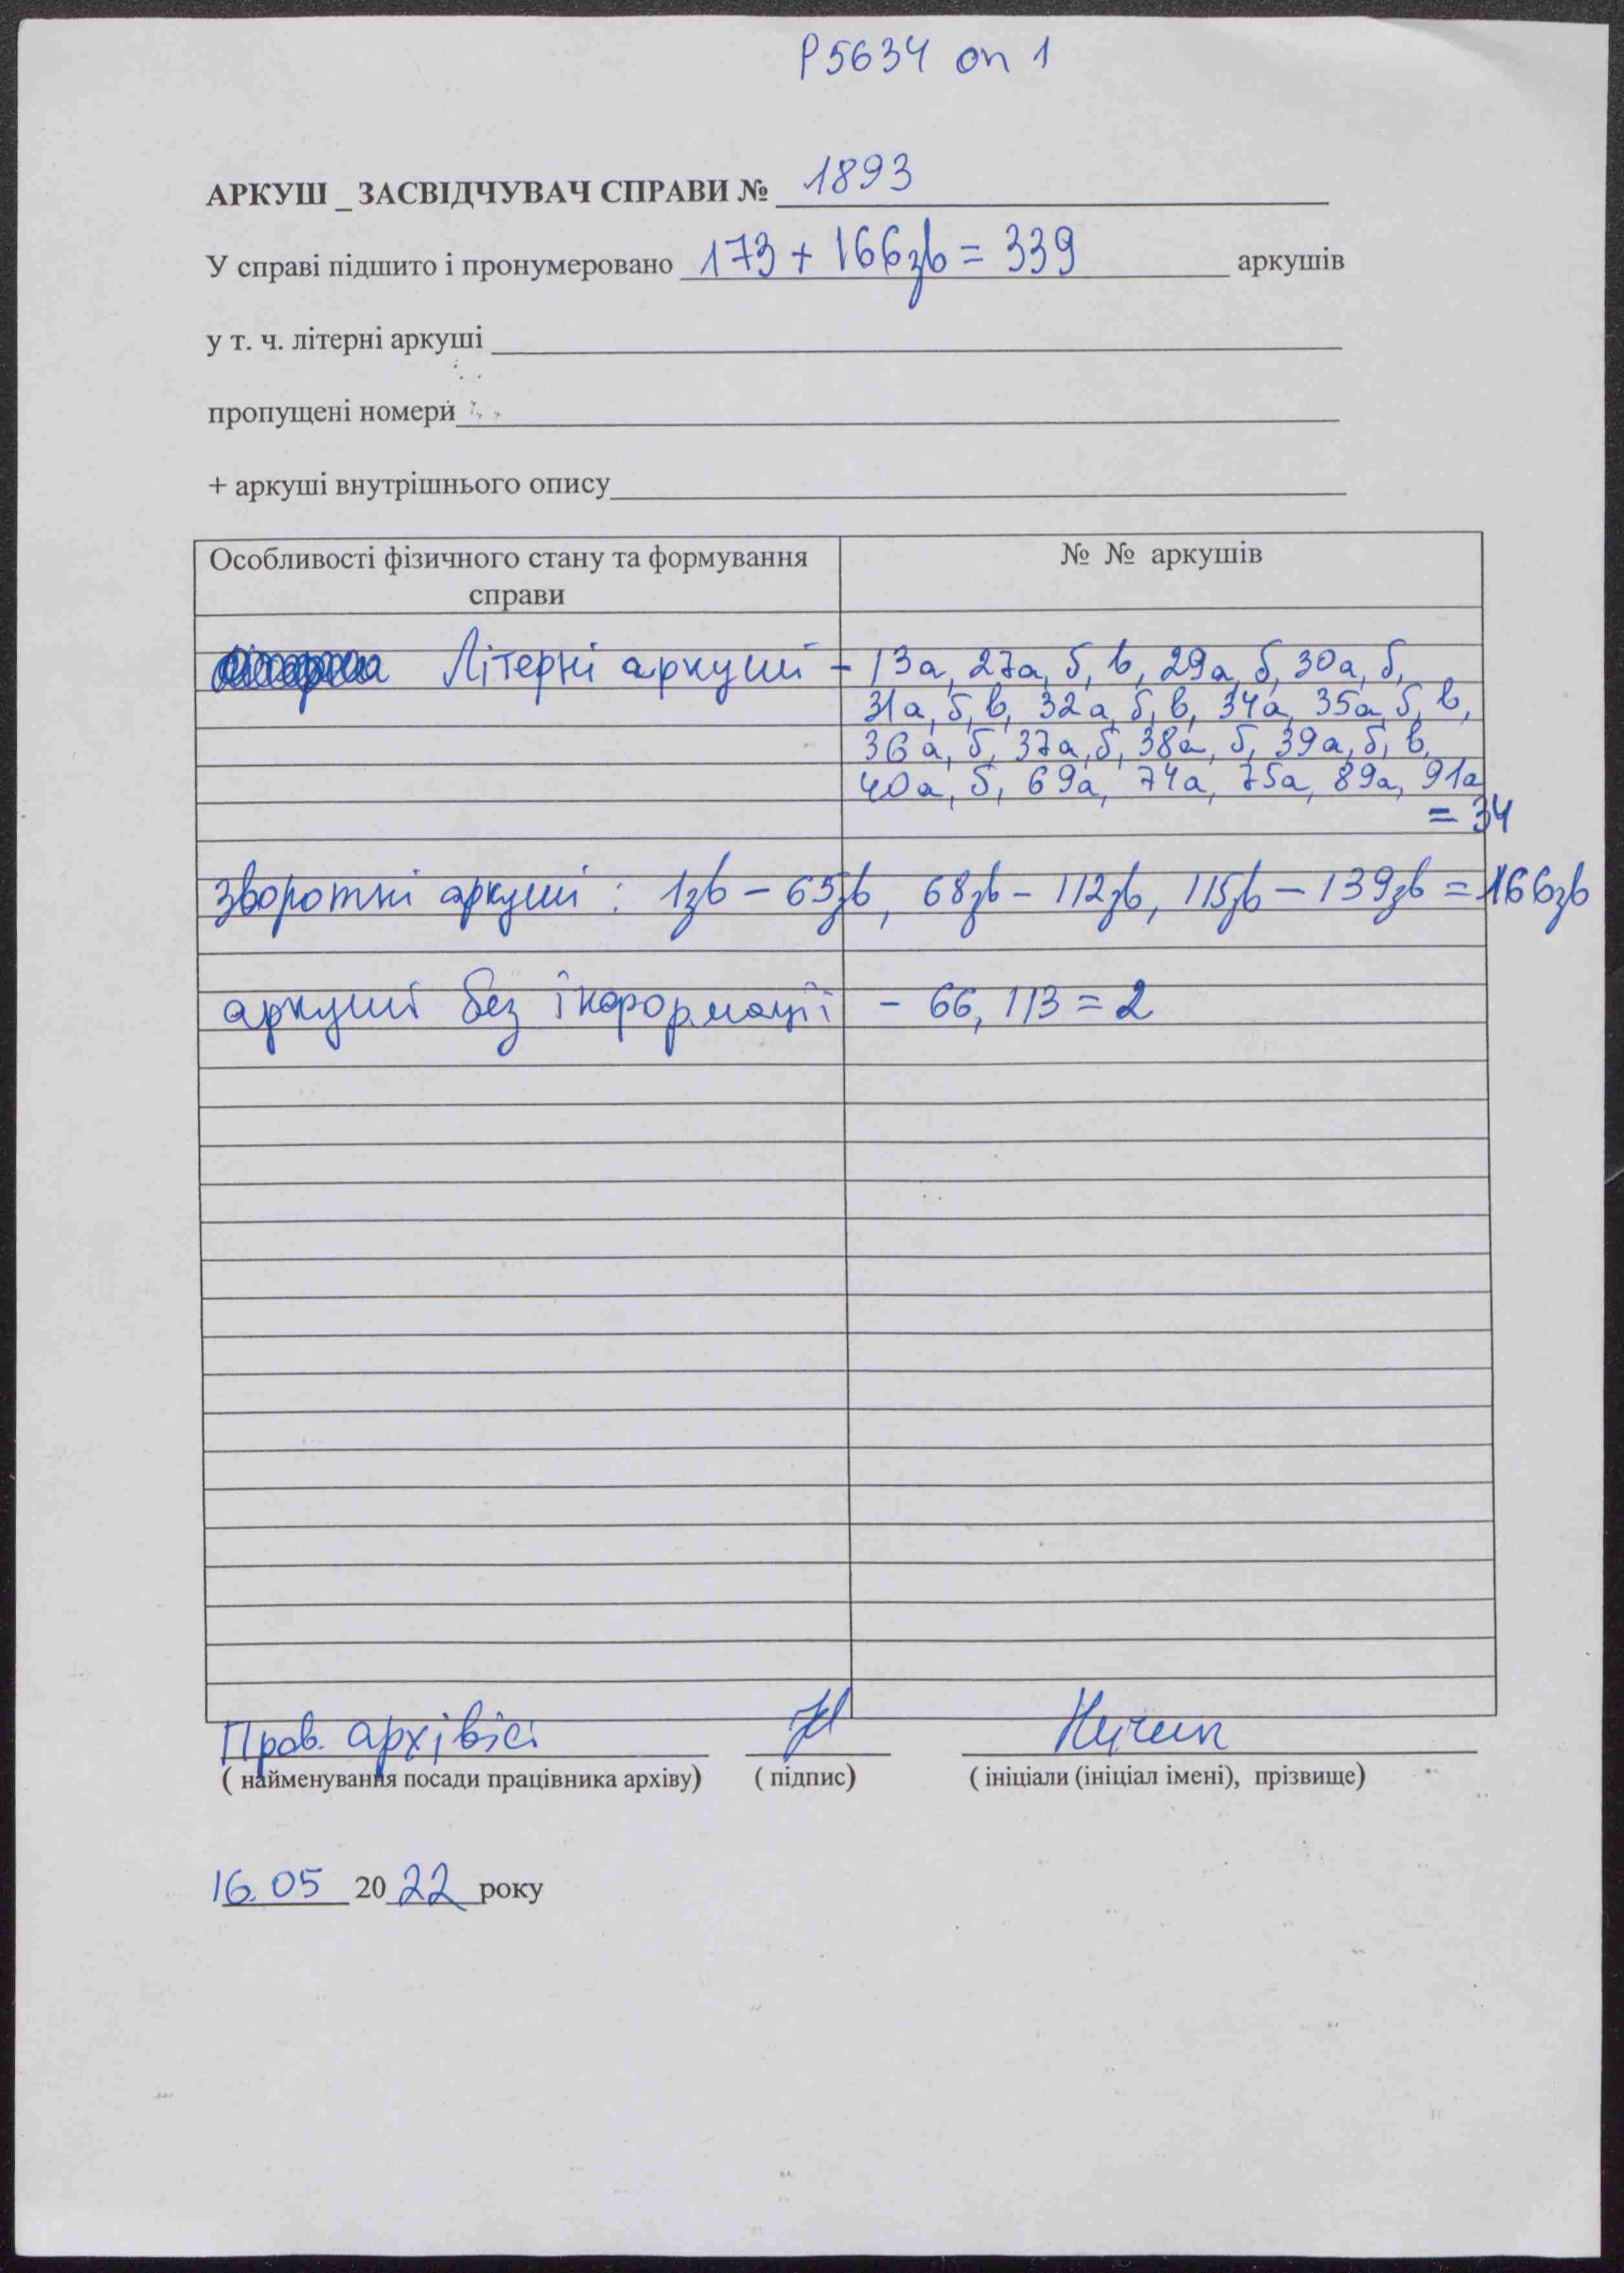 Р5634 оп 1
АРКУШ _ ЗАСВІДЧУВАЧ СПРАВИ № 1893
У справі підшито і пронумеровано 173 + 166зв = 339 аркушів
у т. ч. літерні аркуші
пропущені номери
+ аркуші внутрішнього опису
Особливості фізичного стану та формування справи № № аркушів
Літерні аркуші – 13а, 27а, б, в, 29а, б, 30а, б,
31а, б, в, 32а, б, в, 34а, 35а, б, в,
36а, б, 37а, б, 38а, б, 39а, б, в,
40а, б, 69а, 74а, 75а, 89а, 91а
= 34
зворотні аркуші : 1зв – 65зв, 68зв – 112зв, 115зв – 139зв = 166зв
аркуші без інформації – 66, 113 = 2
Пров. архівіст
( найменування посади працівника архіву) ( підпис) ( ініціали (ініціал імені), прізвище)
16.05 2022 року